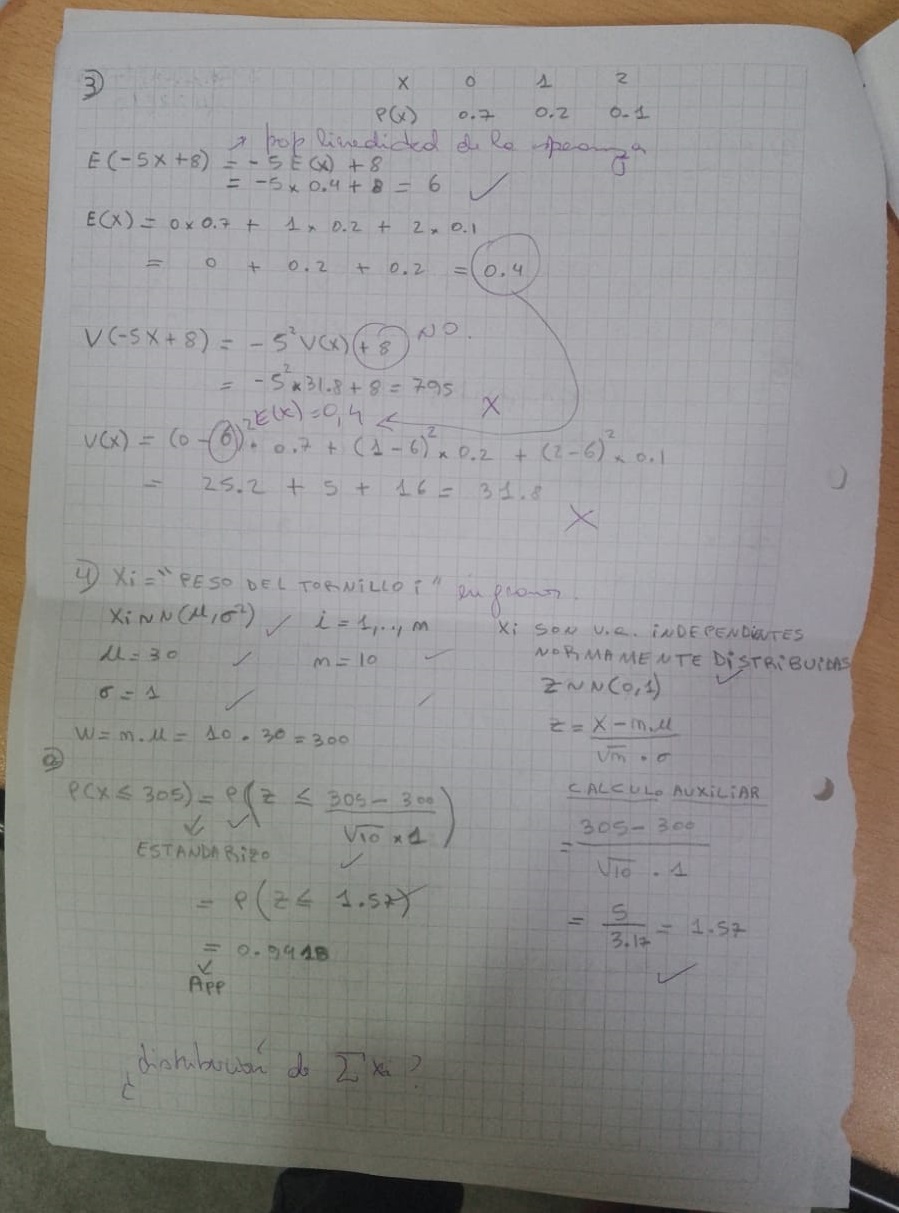 3) X 0 1 2
P(X) 0.7 0.2 0.1
↗ pop linedidad de la speranza
E(-5X+8) = -5 E(X) + 8
= -5 x 0.4 + 8 = 6 ✓
E(X) = 0 x 0.7 + 1 x 0.2 + 2 x 0.1
= 0 + 0.2 + 0.2 = 0.4
V(-5X+8) = -5² V(X) + 8 NO.
= -5² x 31.8 + 8 = 795
X
E(X) = 0,4 ←
V(X) = (0-6)² · 0.7 + (1-6)² x 0.2 + (2-6)² x 0.1
= 25.2 + 5 + 16 = 31.8
X
4) Xi = "PESO DEL TORNILLO i" en gramos.
Xi ~ N(μ, σ²) ✓ i = 1,..,n
μ = 30 ✓ n = 10 ✓
σ = 1 ✓ ✓
W = n.μ = 10 . 30 = 300
Xi SON V.a. INDEPENDIENTES
NORMAMENTE DISTRIBUIDAS ✓
Z ~ N(0,1)
Z = X - n.μ / √n . σ
a)
P(X ≤ 305) = P(Z ≤ 305 - 300 / √10 x 1)
✓
ESTANDARIZO ✓
= P(Z ≤ 1.57)
= 0.9418
App
CALCULO AUXILIAR
= 305 - 300 / √10 . 1
= 5 / 3.17 = 1.57
✓
¿distribución de Σ Xi?